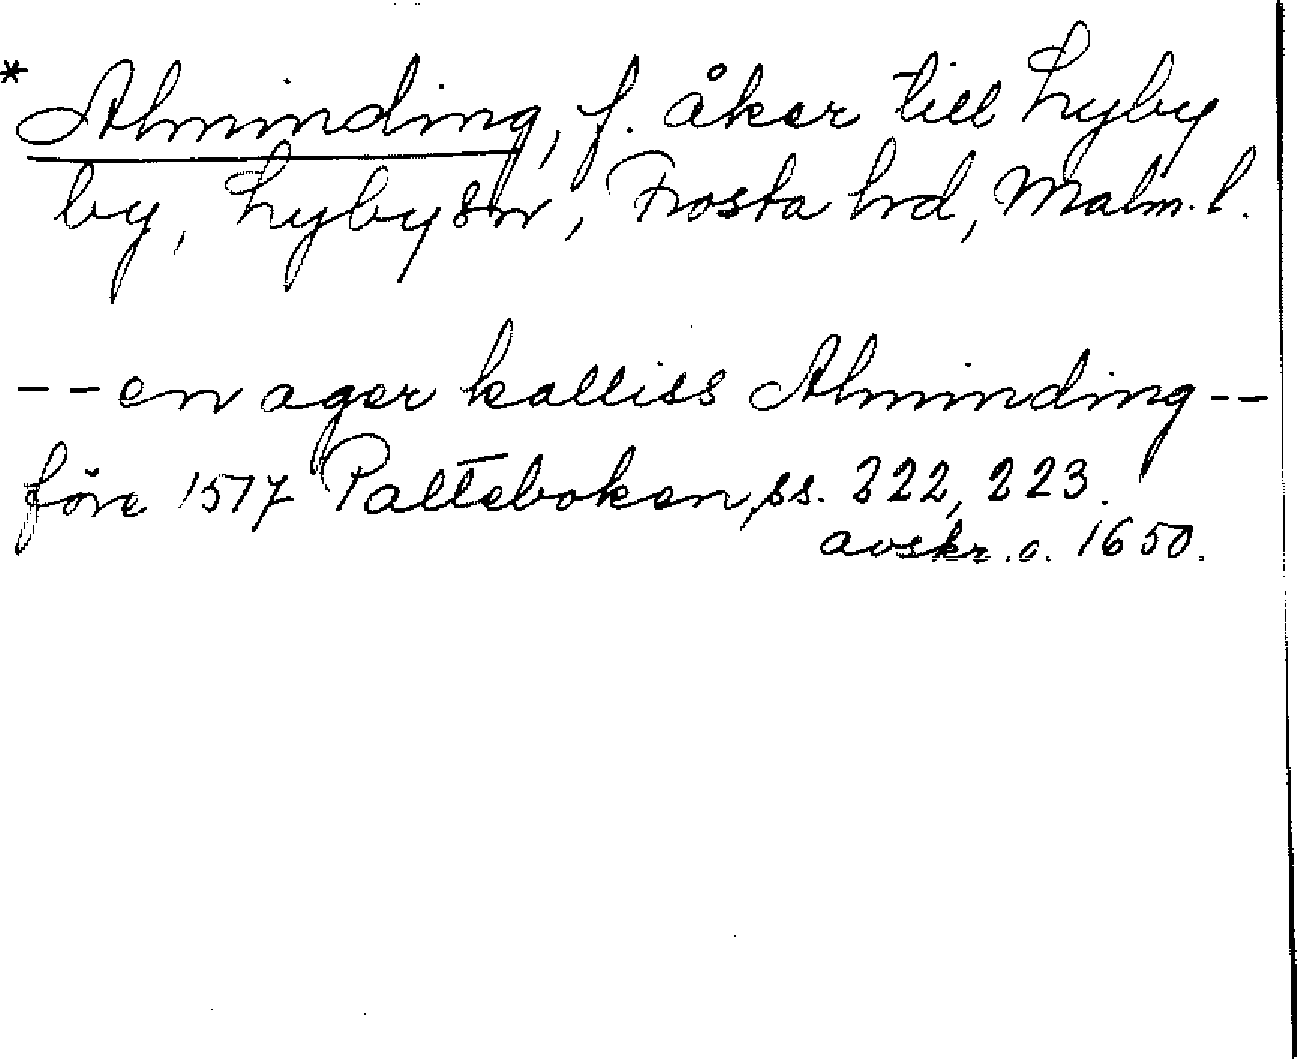 *Alminding, f. åker till Lyby
by, Lyby sn, Frosta hd, Malm. l.
-- en ager kalliss Alminding --
före 1517 Palteboken, ss. 222, 223.
avskr. c. 1650.